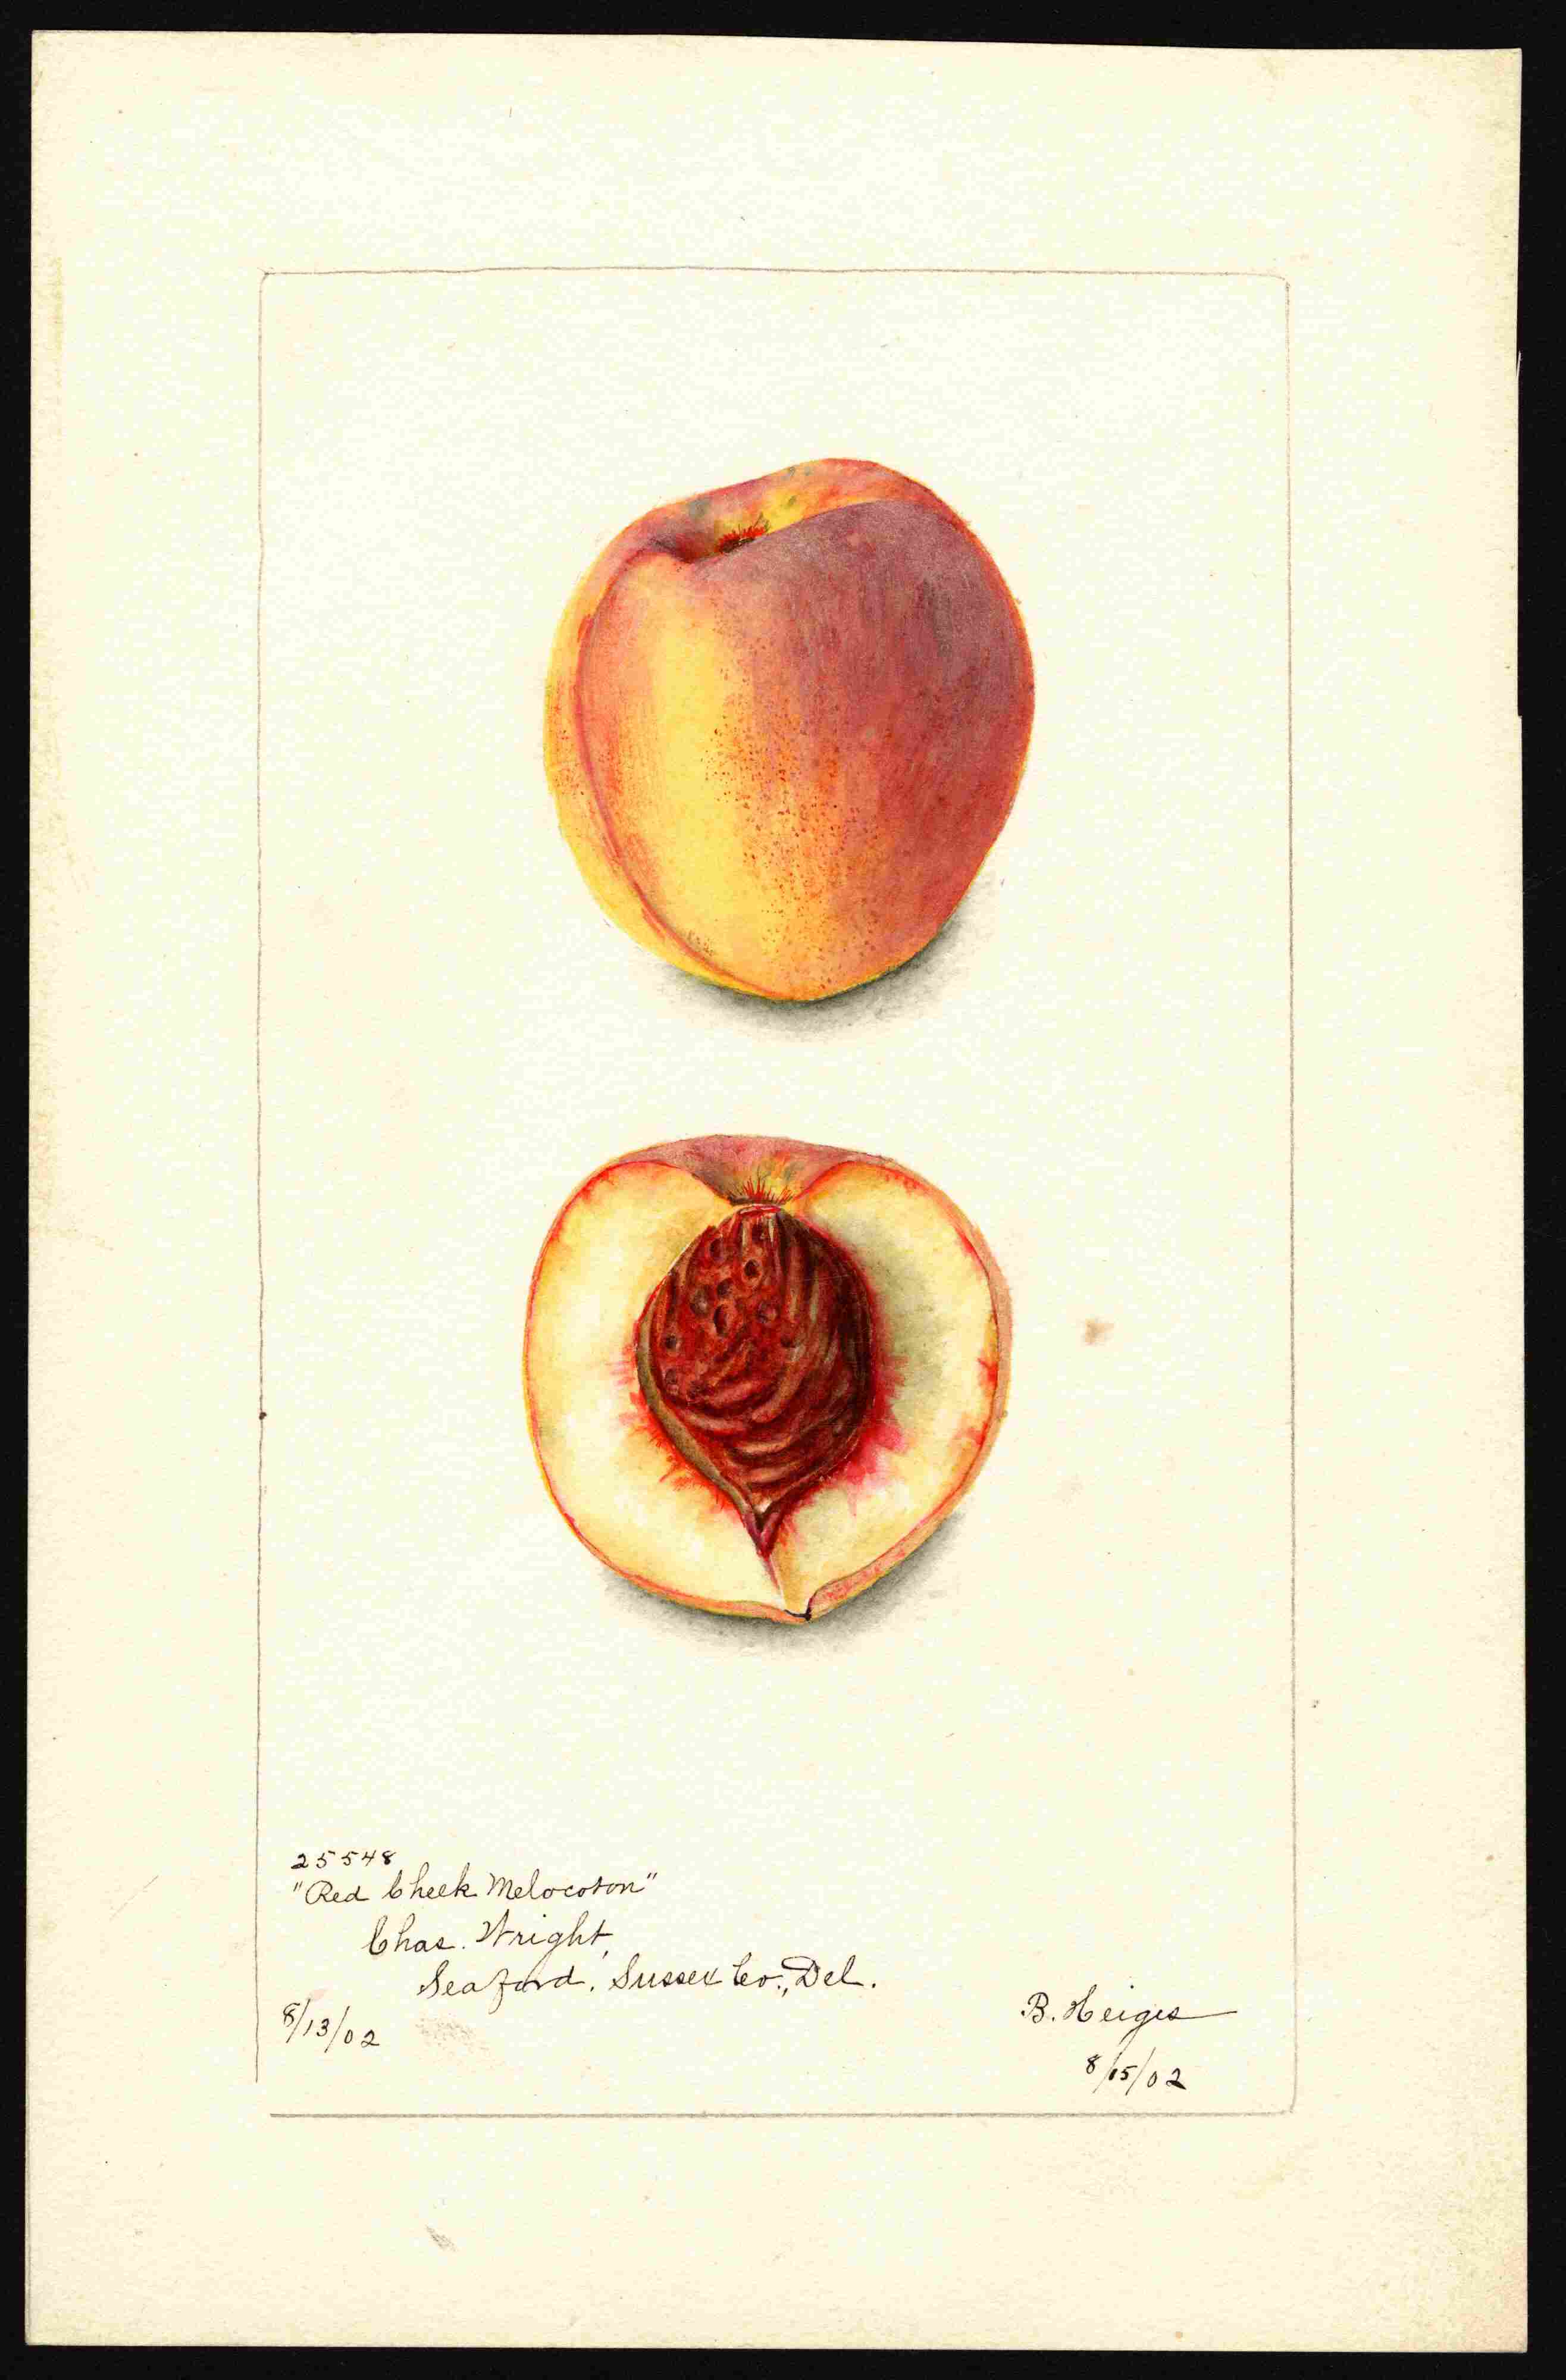 25548
"Red Cheek Melocoton"
Chas. Wright,
Seaford, Sussex Co., Del.
8/13/02
B. Heiges
8/15/02